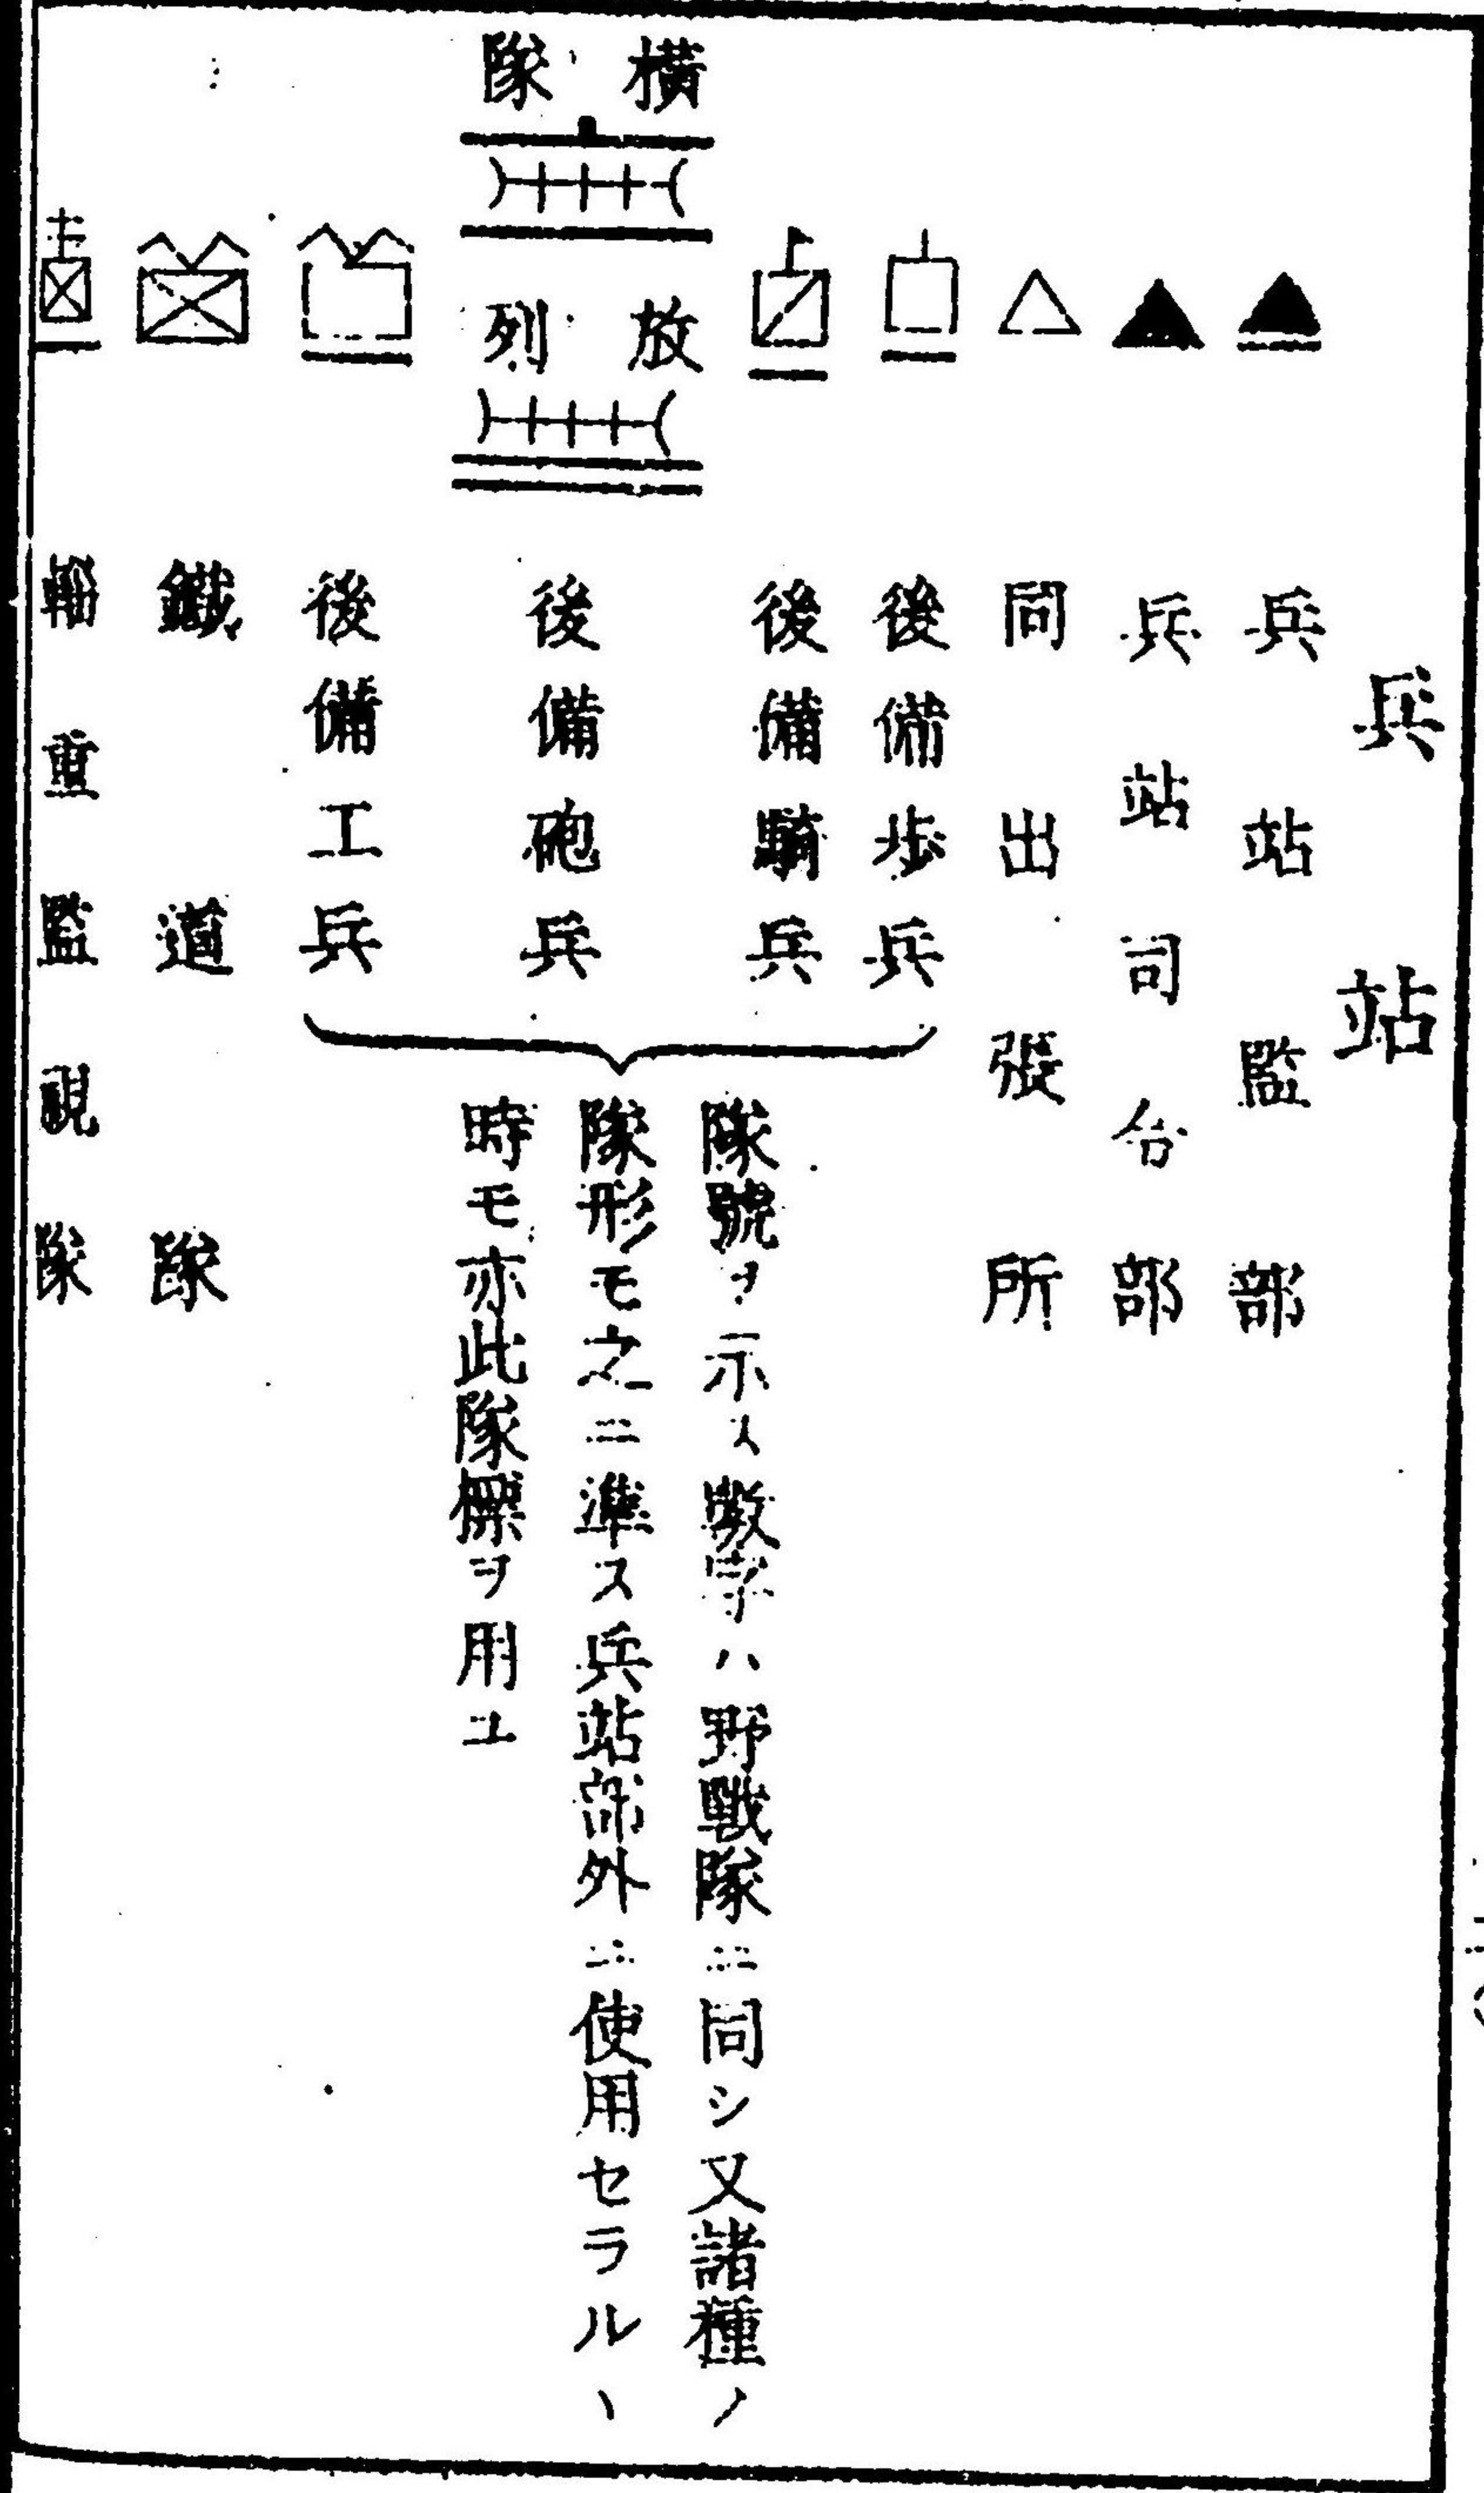 兵站
兵站監部
兵站司令部
同出張所
後備歩兵
後備騎兵
横隊
放列
後備砲兵
後備工兵
隊號ヲ示ス數字ハ野戰隊ニ同シ又諸種ノ
隊形モ之ニ準ス兵站部外ニ使用セラルヽ
時モ亦此隊標ヲ用ユ
鐵道隊
輜重監視隊